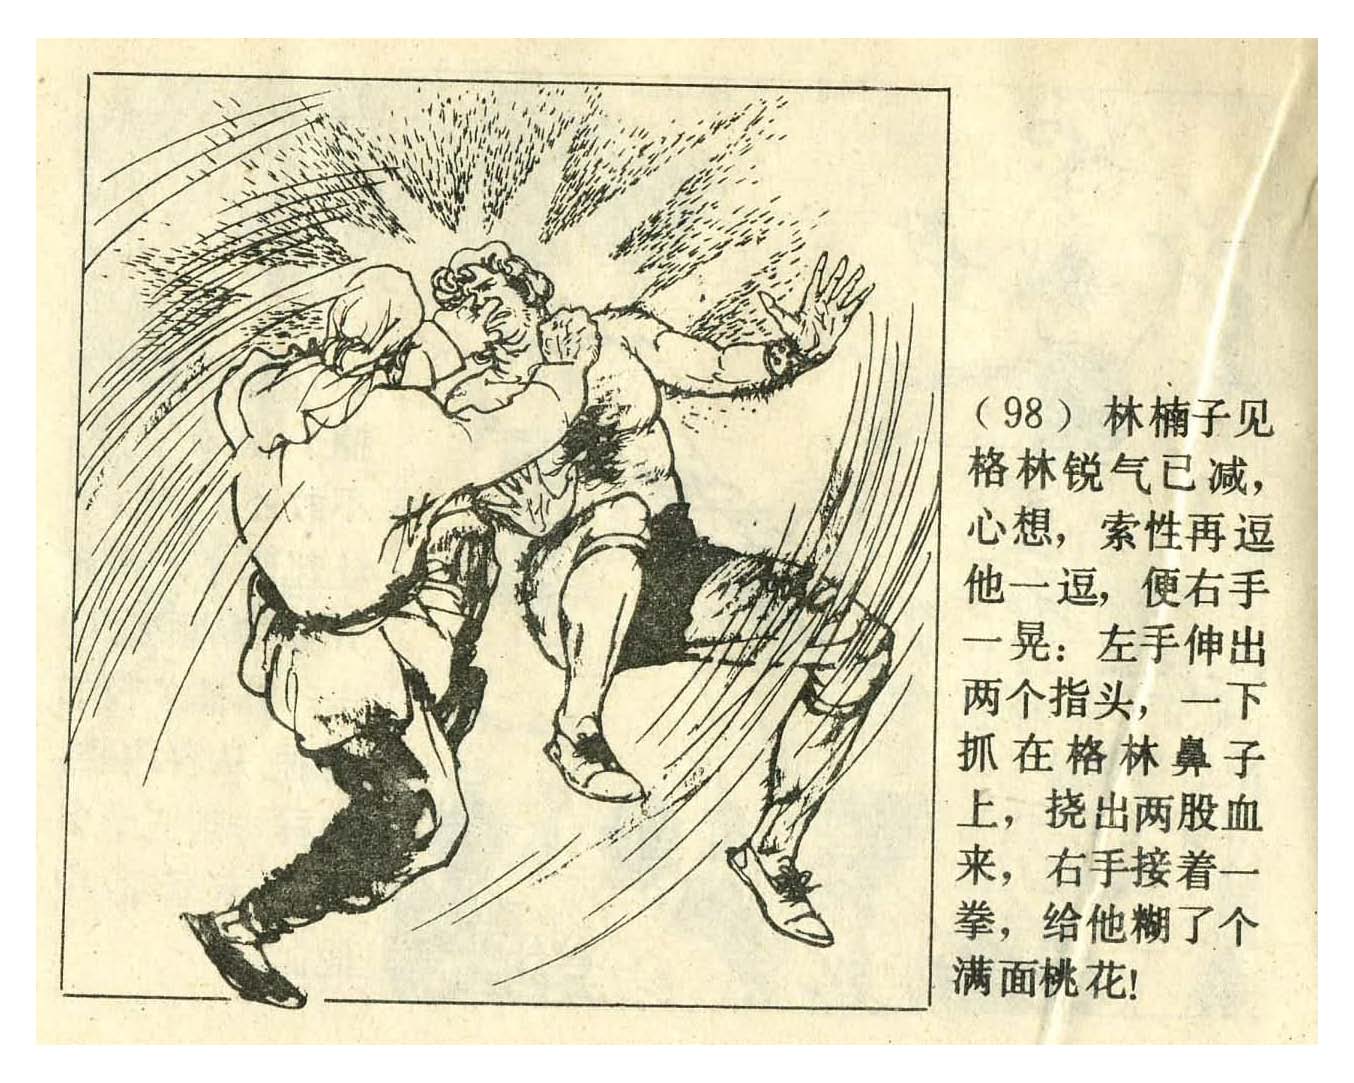 （98）林楠子见
格林锐气已减，
心想，索性再逗
他一逗，便右手
一晃：左手伸出
两个指头，一下
抓在格林鼻子
上，挠出两股血
来，右手接着一
拳，给他糊了个
满面桃花！